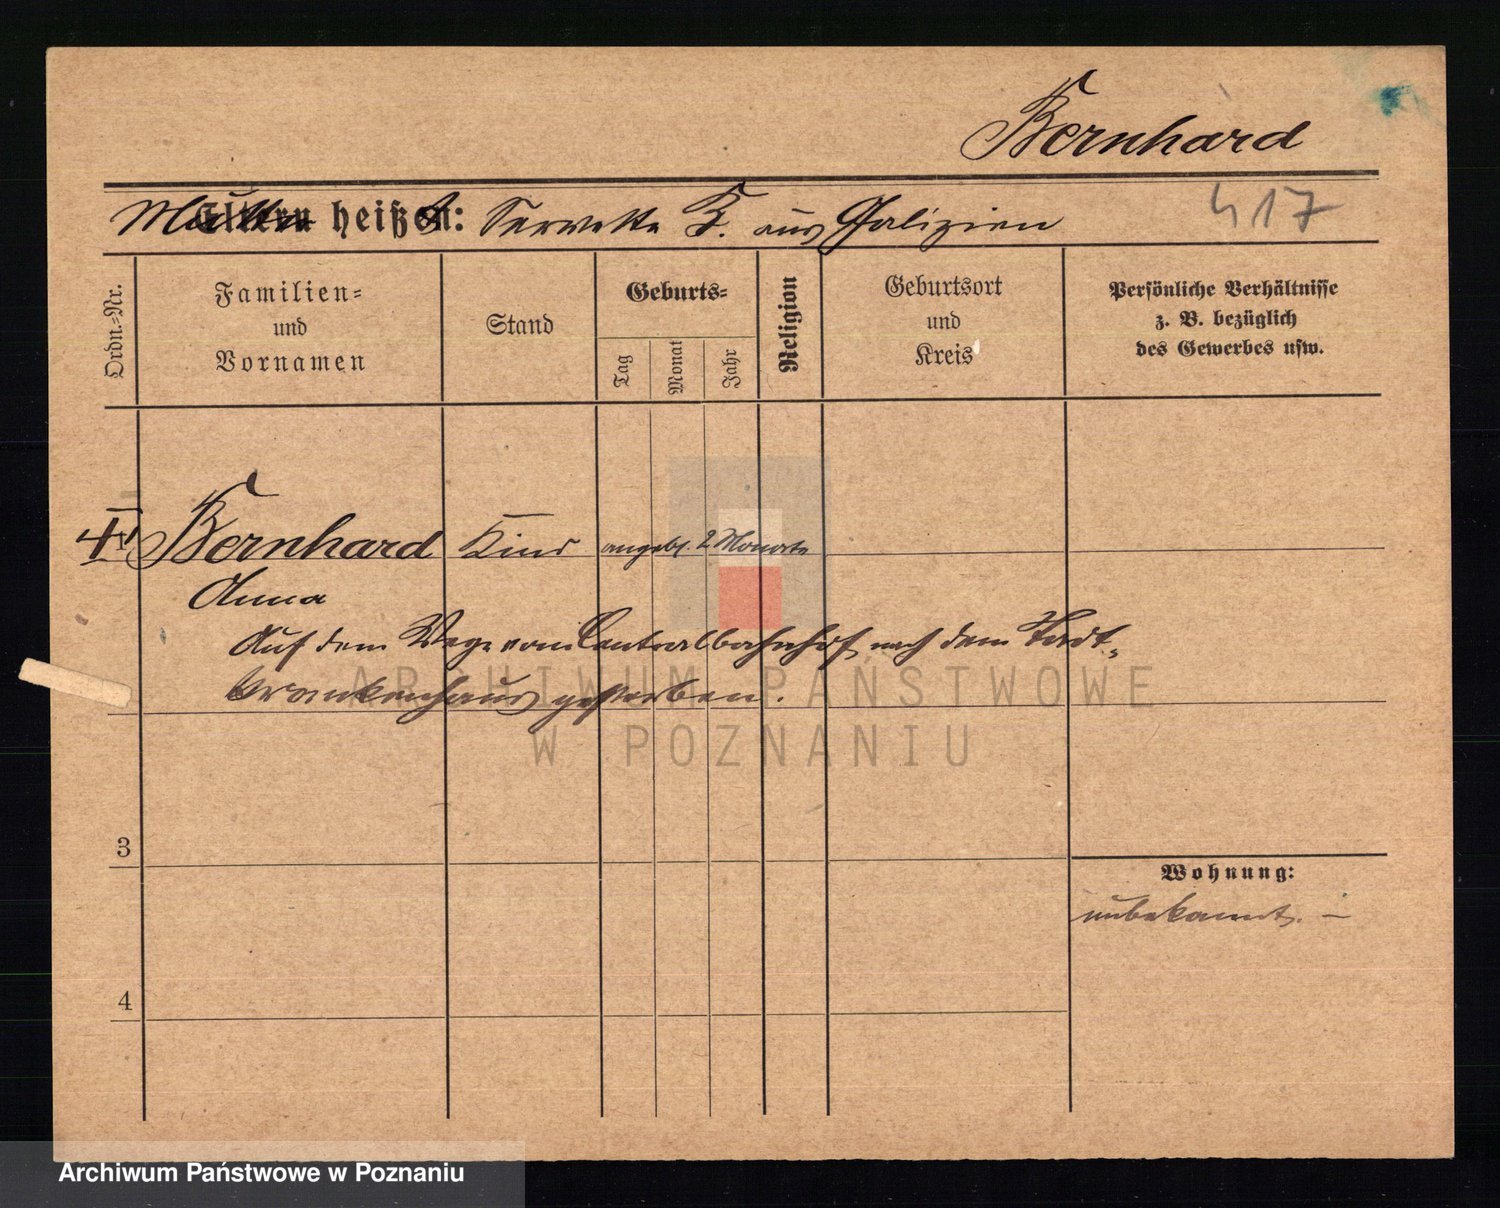 Bernhard
Mutter heißt: B. aus Galizien
417
Ordn.-Nr.
Familien-
und
Vornamen
Stand
Geburts-
Tag
Monat
Jahr
Religion
Geburtsort
und
Kreis
Persönliche Verhältnisse
z. B. bezüglich
des Gewerbes usw.
Bernhard Kind angebl. 2 Monate
Anna
Auf dem Wege vom Centralbahnhof nach dem Stadt-
krankenhaus gestorben.
ARCHIWUM PAŃSTWOWE
W POZNANIU
3
Wohnung:
unbekannt. –
4
Archiwum Państwowe w Poznaniu